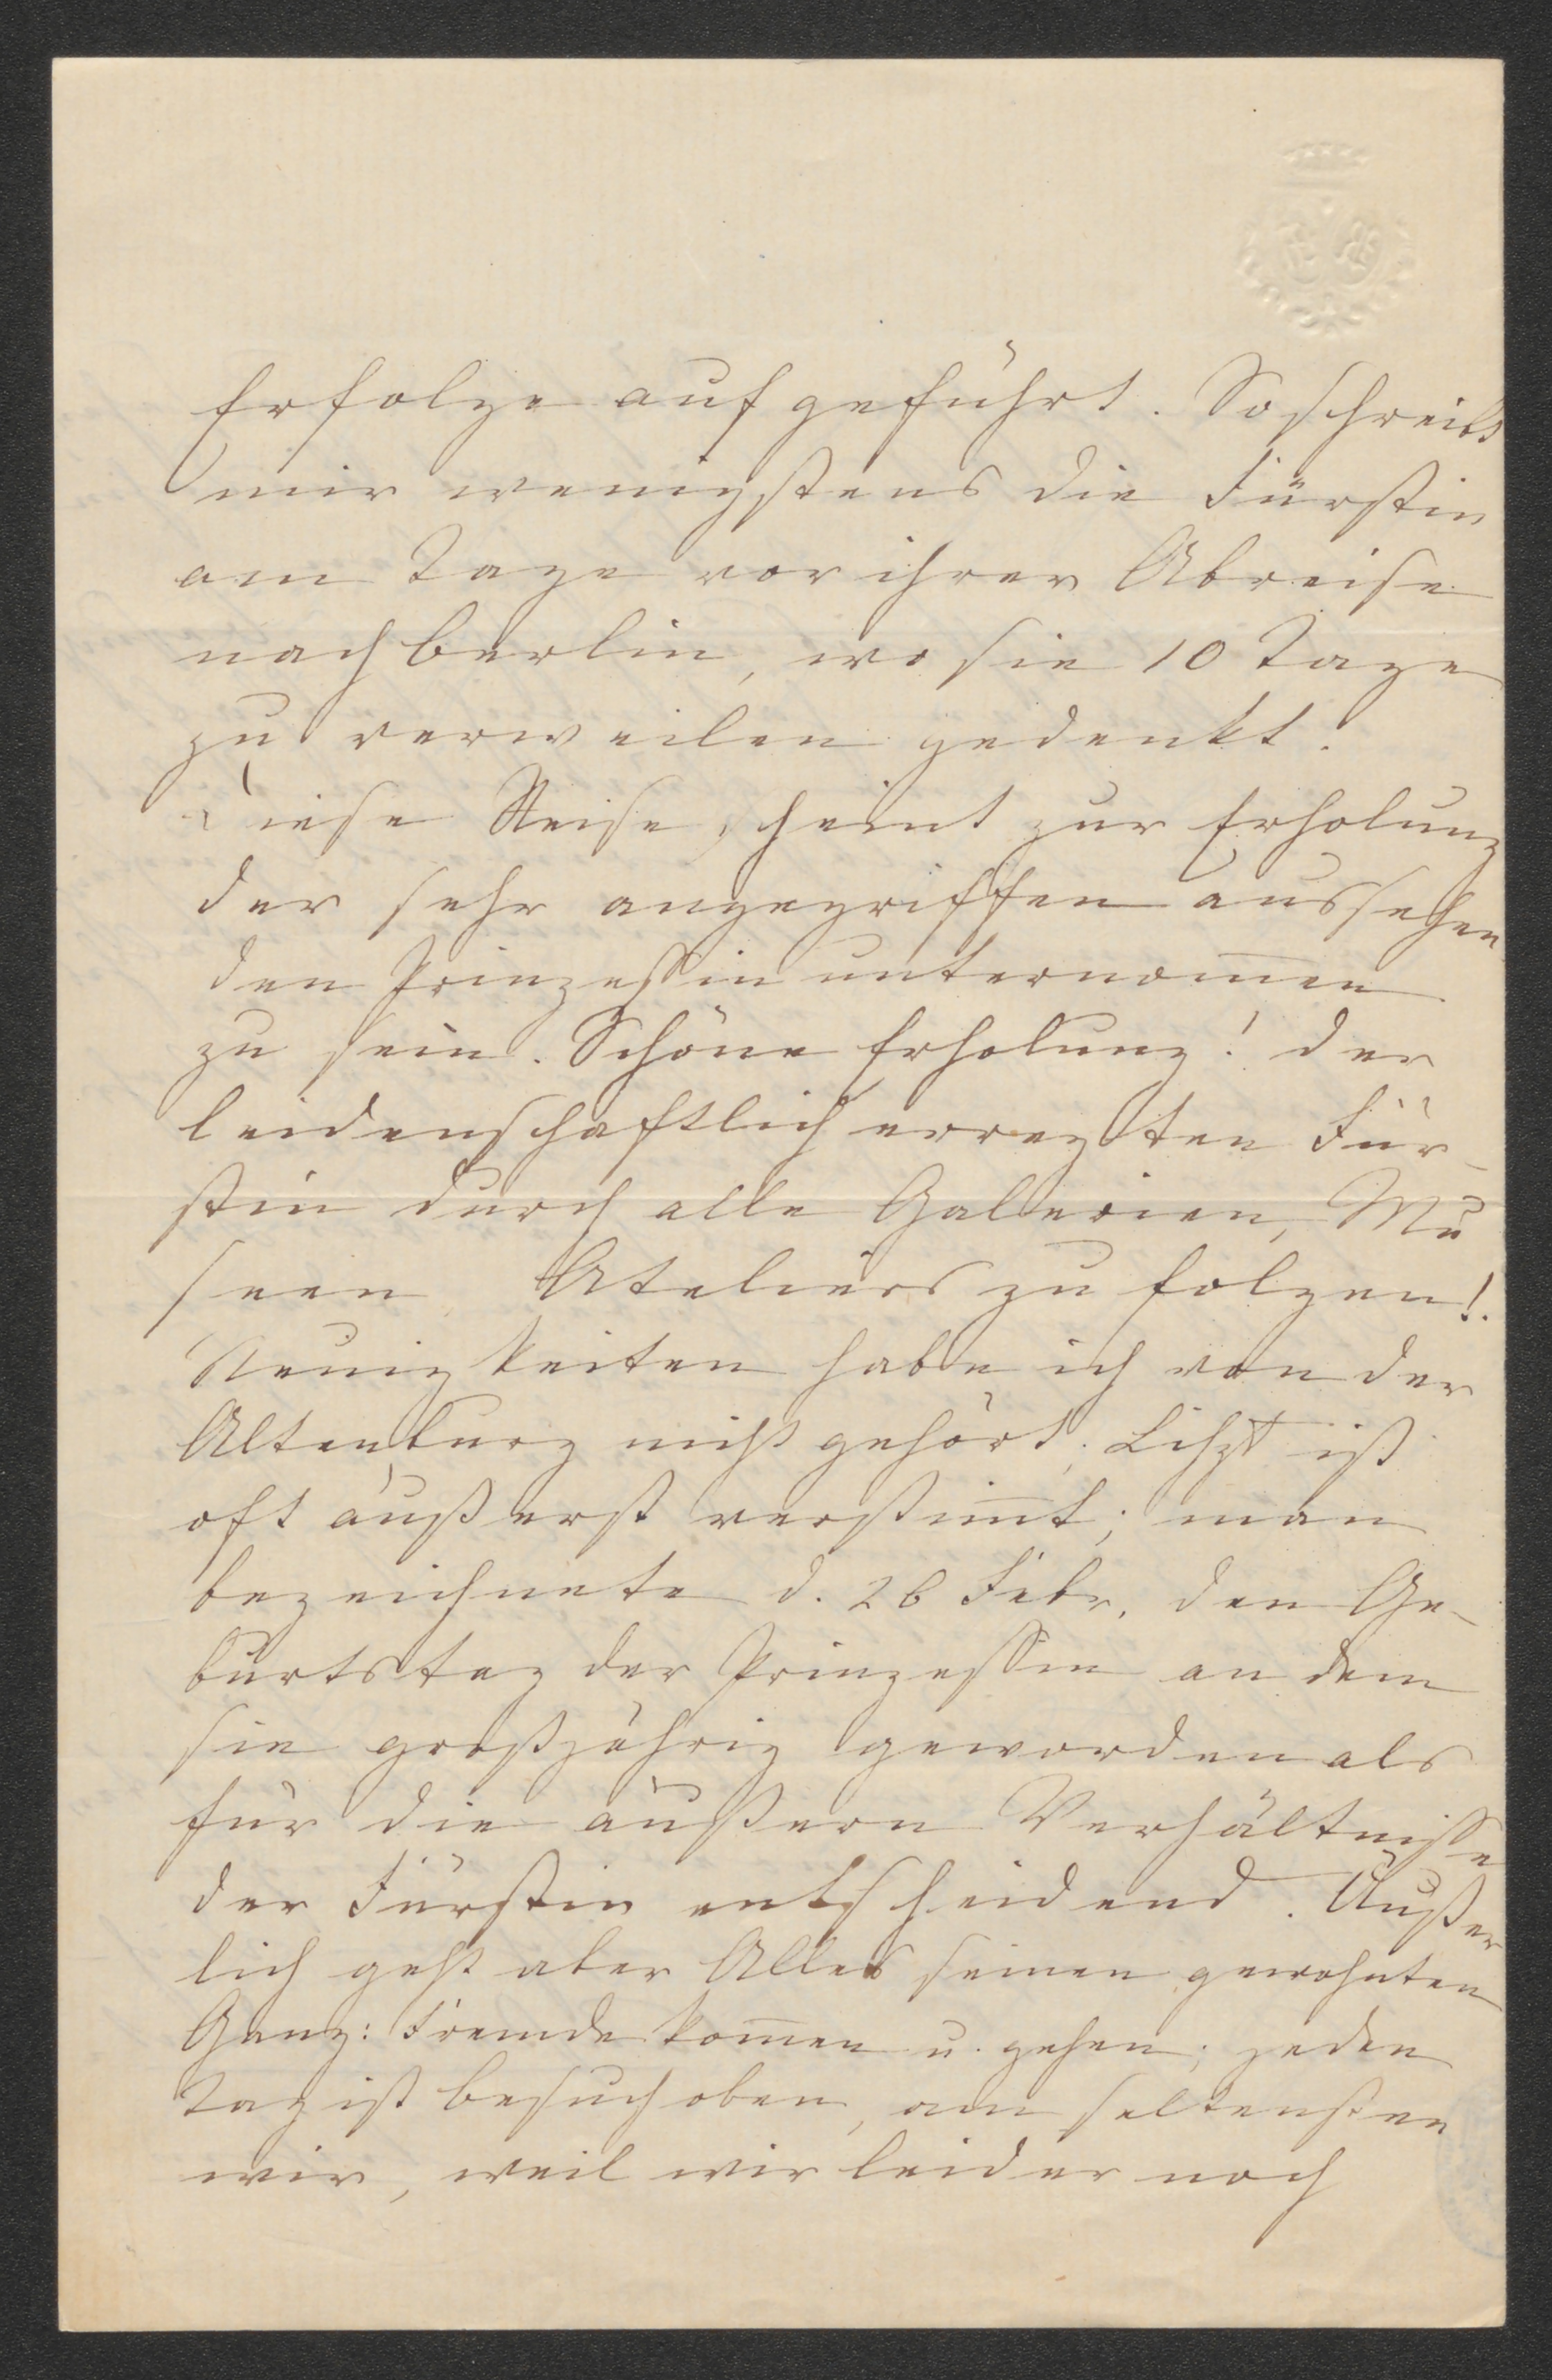 Erfolge aufgeführt. So schreibt
mir wenigstens die Fürstin
am Tage vor ihrer Abreise
nach Berlin, wo sie 10 Tage
zu verweilen gedenkt.
Diese Reise scheint zur Erholung
der sehr angegriffen aussehen
den Prinzessin unternom̅en
zu sein. Schöne Erholung! der
leidenschaftlich erregten Für-
stin durch alle Galerien, Mu
seen, Ateliers zu folgen!
Neuigkeiten habe ich von der
Altenburg nicht gehört; Liszt ist
oft äußerst verstim̅t; man
bezeichnete d. 26 Febr. den Ge-
burtstag der Prinzessin an dem
sie großjährig geworden als
für die äußern Verhältnisse
der Fürstin entscheidend. Äußer
lich geht aber Alles seinen gewohnten
Gang: Fremde kom̅en u. gehen; jeden
Tag ist Besuch oben, am seltensten
wir, weil wir leider noch